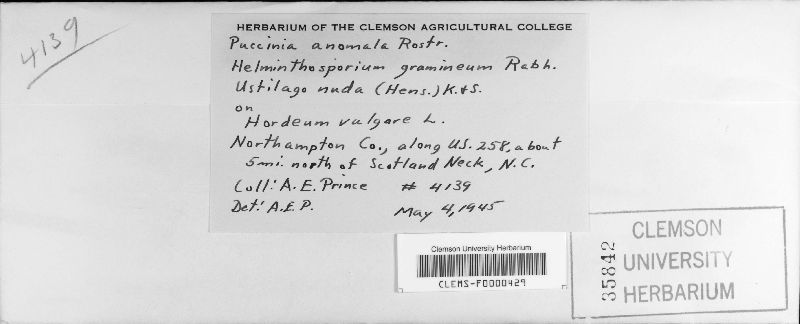 4139
HERBARIUM OF THE CLEMSON AGRICULTURAL COLLEGE
Puccinia anomala Rostr.
Helminthosporium gramineum Rabh.
Ustilago nuda (Hens.) K.&S.
on
Hordeum vulgare L.
Northampton Co., along US. 258, about
5 mi. north of Scotland Neck, N.C.
Coll: A. E. Prince # 4139
Det: A.E.P. May 4, 1945
Clemson University Herbarium
CLEMS-F0000429
35842
CLEMSON
UNIVERSITY
HERBARIUM